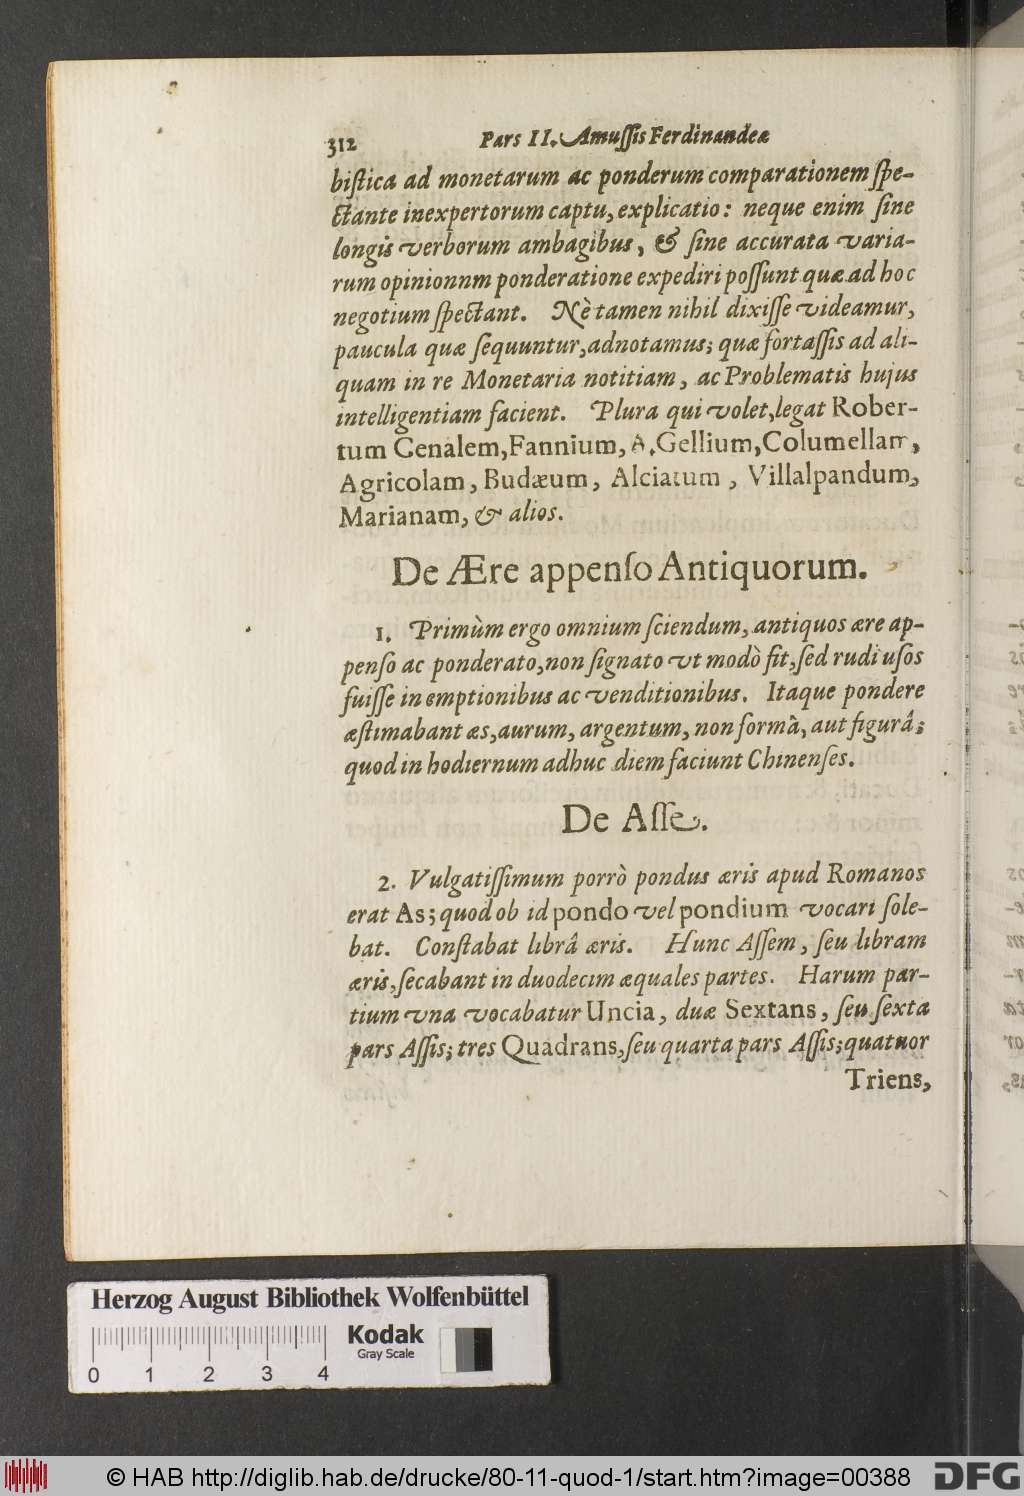 312 Pars II. Amuſſis Ferdinandeæ
biſtica ad monetarum ac ponderum comparationem ſpe-
ctante inexpertorum captu, explicatio: neque enim ſine
longis verborum ambagibus, & ſine accurata varia-
rum opinionnm ponderatione expediri poſſunt quæ ad hoc
negotium ſpectant. Nè tamen nihil dixiſſe videamur,
paucula quæ ſequuntur, adnotamus; quæ fortaſſis ad ali-
quam in re Monetaria notitiam, ac Problematis hujus
intelligentiam facient. Plura qui volet, legat Rober-
tum Cenalem, Fannium, A. Gellium, Columellam,
Agricolam, Budæum, Alciatum, Villalpandum,
Marianam, & alios.
De Ære appenſo Antiquorum.
1. Primùm ergo omnium ſciendum, antiquos ære ap-
penſo ac ponderato, non ſignato vt modò fit, ſed rudi uſos
fuiſſe in emptionibus ac venditionibus. Itaque pondere
æſtimabant æs, aurum, argentum, non formâ, aut figurâ;
quod in hodiernum adhuc diem faciunt Chinenſes.
De Aſſe.
2. Vulgatiſſimum porrò pondus æris apud Romanos
erat As; quod ob id pondo vel pondium vocari ſole-
bat. Conſtabat librâ æris. Hunc Aſſem, ſeu libram
æris, ſecabant in duodecim æquales partes. Harum par-
tium vna vocabatur Uncia, duæ Sextans, ſeu ſexta
pars Aſſis; tres Quadrans, ſeu quarta pars Aſſis; quatuor
Triens,
Herzog August Bibliothek Wolfenbüttel
Kodak
Gray Scale
0 1 2 3 4
© HAB http://diglib.hab.de/drucke/80-11-quod-1/start.htm?image=00388
DFG